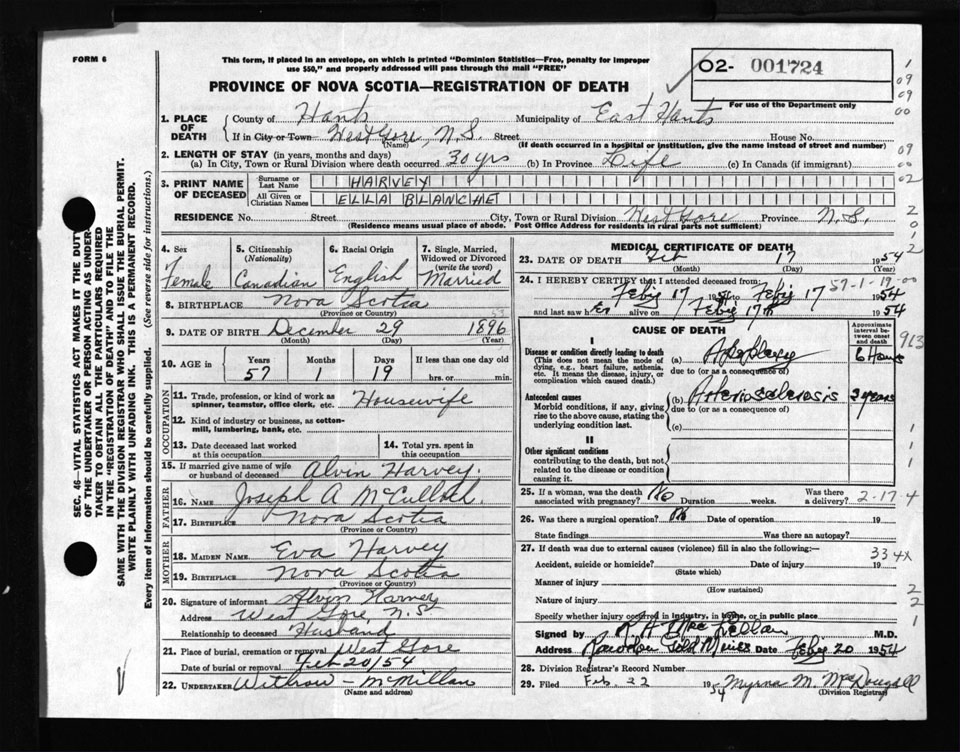 FORM 6
This form, if placed in an envelope, on which is printed "Dominion Statistics—Free, penalty for improper
use $50," and properly addressed will pass through the mail "FREE"
PROVINCE OF NOVA SCOTIA—REGISTRATION OF DEATH
O2- 001724
For use of the Department only
1. PLACE OF DEATH
County of Hants Municipality of East Hants
If in City or Town West Gore, N.S. Street House No.
(Name) (If death occurred in a hospital or institution, give the name instead of street and number)
2. LENGTH OF STAY (in years, months and days)
(a) In City, Town or Rural Division where death occurred 30 yrs (b) In Province Life (c) In Canada (if immigrant)
3. PRINT NAME OF DECEASED
Surname or Last Name HARVEY
All Given or Christian Names ELLA BLANCHE
RESIDENCE No. Street City, Town or Rural Division West Gore Province N.S.
(Residence means usual place of abode. Post Office Address for residents in rural parts not sufficient)
4. Sex Female
5. Citizenship (Nationality) Canadian
6. Racial Origin English
7. Single, Married, Widowed or Divorced (write the word) Married
8. BIRTHPLACE Nova Scotia
(Province or Country)
9. DATE OF BIRTH December 29 1896
(Month) (Day) (Year)
10. AGE in Years 57 Months 1 Days 19 If less than one day old hrs. or min.
OCCUPATION
11. Trade, profession, or kind of work as spinner, teamster, office clerk, etc. Housewife
12. Kind of industry or business, as cotton-mill, lumbering, bank, etc.
13. Date deceased last worked at this occupation
14. Total yrs. spent in this occupation
15. If married give name of wife or husband of deceased Alvin Harvey.
FATHER
16. NAME Joseph A McCulloch
17. BIRTHPLACE Nova Scotia
(Province or Country)
MOTHER
18. MAIDEN NAME Eva Harvey
19. BIRTHPLACE Nova Scotia
(Province or Country)
20. Signature of informant Alvin Harvey
Address West Gore, N.S
Relationship to deceased Husband
21. Place of burial, cremation or removal West Gore
Date of burial or removal Feb 20/54
22. UNDERTAKER Withrow - McMillan
(Name and address)
MEDICAL CERTIFICATE OF DEATH
23. DATE OF DEATH Feb 17 1954
(Month) (Day) (Year)
24. I HEREBY CERTIFY that I attended deceased from:
57-1-19
Feby 17 1954 to Feby 17 1954
and last saw her alive on Feby 17th 1954
CAUSE OF DEATH
Approximate interval between onset and death
I
Disease or condition directly leading to death
(This does not mean the mode of dying, e.g., heart failure, asthenia, etc. It means the disease, injury, or complication which caused death.)
(a) Apoplexy 6 Hours
due to (or as a consequence of)
Antecedent causes
Morbid conditions, if any, giving rise to the above cause, stating the underlying condition last.
(b) Arteriosclerosis years
due to (or as a consequence of)
(c)
II
Other significant conditions
contributing to the death, but not related to the disease or condition causing it.
25. If a woman, was the death associated with pregnancy? No Duration weeks. Was there a delivery?
2-17-4
26. Was there a surgical operation? No Date of operation 19
State findings Was there an autopsy?
27. If death was due to external causes (violence) fill in also the following:—
334X
Accident, suicide or homicide? Date of injury 19
(State which)
Manner of injury
(How sustained)
Nature of injury
Specify whether injury occurred in industry, in home, or in public place
Signed by M.D.
Address Rawdon Gold Mines Date Feby 20 1954
28. Division Registrar's Record Number
29. Filed Feb. 22 1954 Myrna M. McDougall
(Division Registrar)
SEC. 46—VITAL STATISTICS ACT MAKES IT THE DUTY
OF THE UNDERTAKER OR PERSON ACTING AS UNDER-
TAKER TO OBTAIN ALL THE PARTICULARS REQUIRED
IN THE "REGISTRATION OF DEATH" AND TO FILE THE
SAME WITH THE DIVISION REGISTRAR WHO SHALL ISSUE THE BURIAL PERMIT.
WRITE PLAINLY WITH UNFADING INK. THIS IS A PERMANENT RECORD.
Every item of information should be carefully supplied. (See reverse side for instructions.)